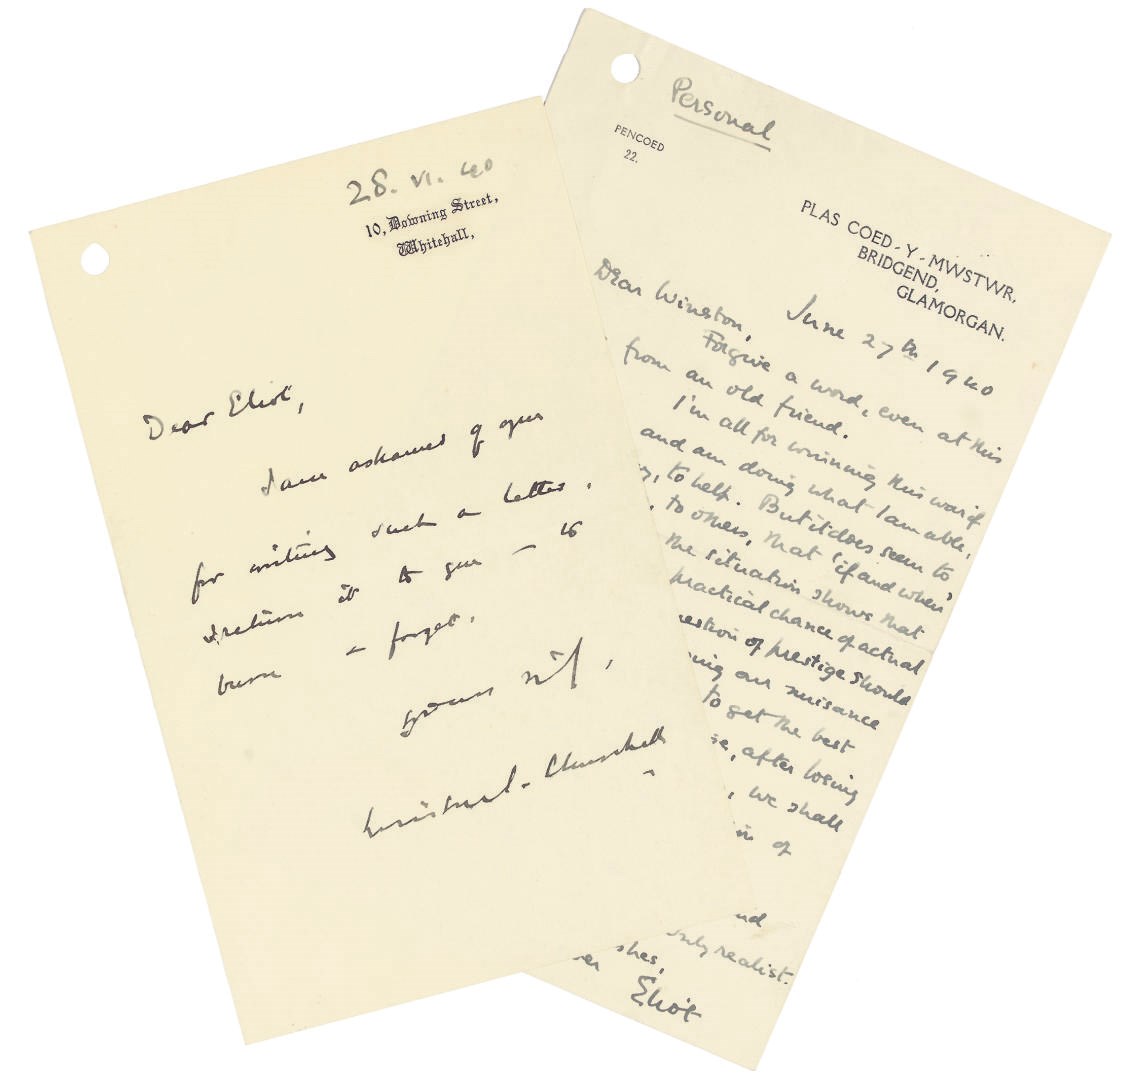 28. VI. 40
10, Downing Street,
Whitehall,
Dear Eliot,
I am ashamed of you
for writing such a letter.
I return it to you — to
burn & forget.
Yours
Winston S. Churchill
Personal
PENCOED
22.
PLAS COED-Y-MWSTWR,
BRIDGEND,
GLAMORGAN.
June 27th 1940
Dear Winston,
Forgive a word, even at this
from an old friend.
I'm all for winning this war if
and am doing what I am able,
to help. But it does seem to
, to others, that 'if and when'
the situation shows that
practical chance of actual
question of prestige should
our nuisance
to get the best
, after losing
, we shall
of
only realist.
Eliot